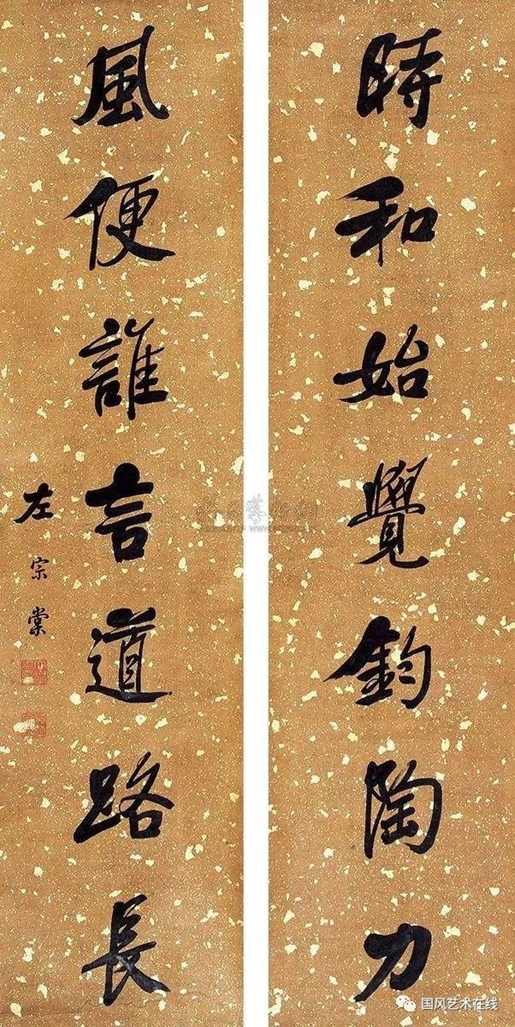 時和始覺鈞陶力
風便誰言道路長
左宗棠
国风艺术在线